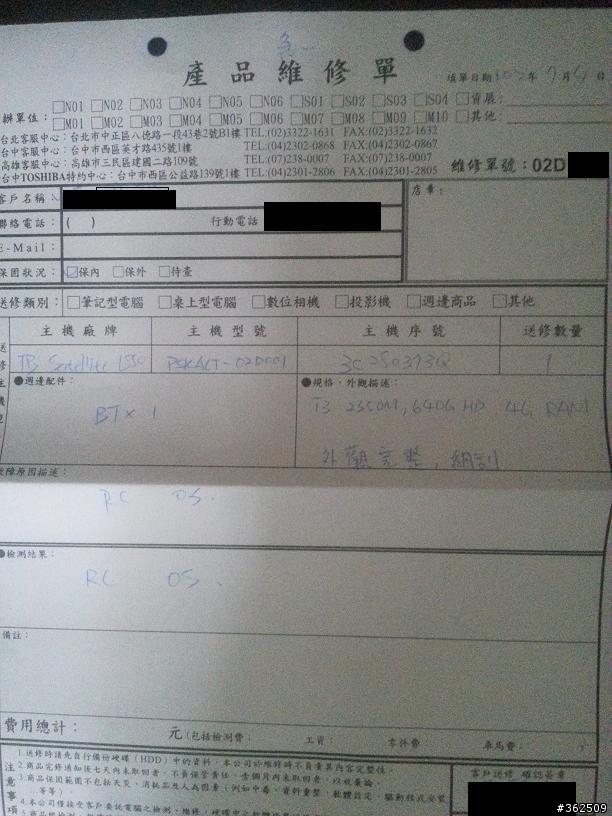 急
產品維修單
填單日期102年7月4日
辦單位: □N01 □N02 □N03 □N04 □N05 □N06 □S01 □S02 □S03 □S04 □資展:
□M01 □M02 □M03 □M04 □M05 □M06 □M07 □M08 □M09 □M10 □其他:
台北客服中心:台北市中正區八德路一段43巷2號B1樓 TEL:(02)3322-1631 FAX:(02)3322-1632
台中客服中心:台中市西區英才路435號1樓 TEL:(04)2302-0868 FAX:(04)2302-0867
高雄客服中心:高雄市三民區建國二路109號 TEL:(07)238-0007 FAX:(07)238-0007
台中TOSHIBA特約中心:台中市西區公益路139號1樓 TEL:(04)2301-2806 FAX:(04)2301-2805
維修單號:02D
客戶名稱
店章:
聯絡電話: ( ) 行動電話
E-Mail:
保固狀況: ☑保內 □保外 □待查
送修類別: □筆記型電腦 □桌上型電腦 □數位相機 □投影機 □週邊商品 □其他
主機廠牌 主機型號 主機序號 送修數量
TB Satellite L850 PSKACT-02D001 3C250373Q 1
●週邊配件: ●規格、外觀描述:
BT×1 i3 2350M, 640G HD 4G RAM
外觀完整, 細刮
故障原因描述:
RC OS.
●檢測結果:
RC OS.
備註:
費用總計: 元(包括檢測費: 工資: 零件費: 車馬費: )
注意事項
1.送修時請先自行備份硬碟(HDD)中的資料,本公司於維修時不負責其內容完整性。
2.商品完修通知後七天內未取回者,不負保管責任,壹個月內未取回者,以放棄論。
3.商品保固範圍不包括天災、消耗品及人為因素(例如中毒、資料重整、軟體設定、驅動程式安裝
...等等)。
4.本公司僅接受客戶委託電腦之檢測、維修,硬碟中之軟體
客戶送修 確認簽章
#362509